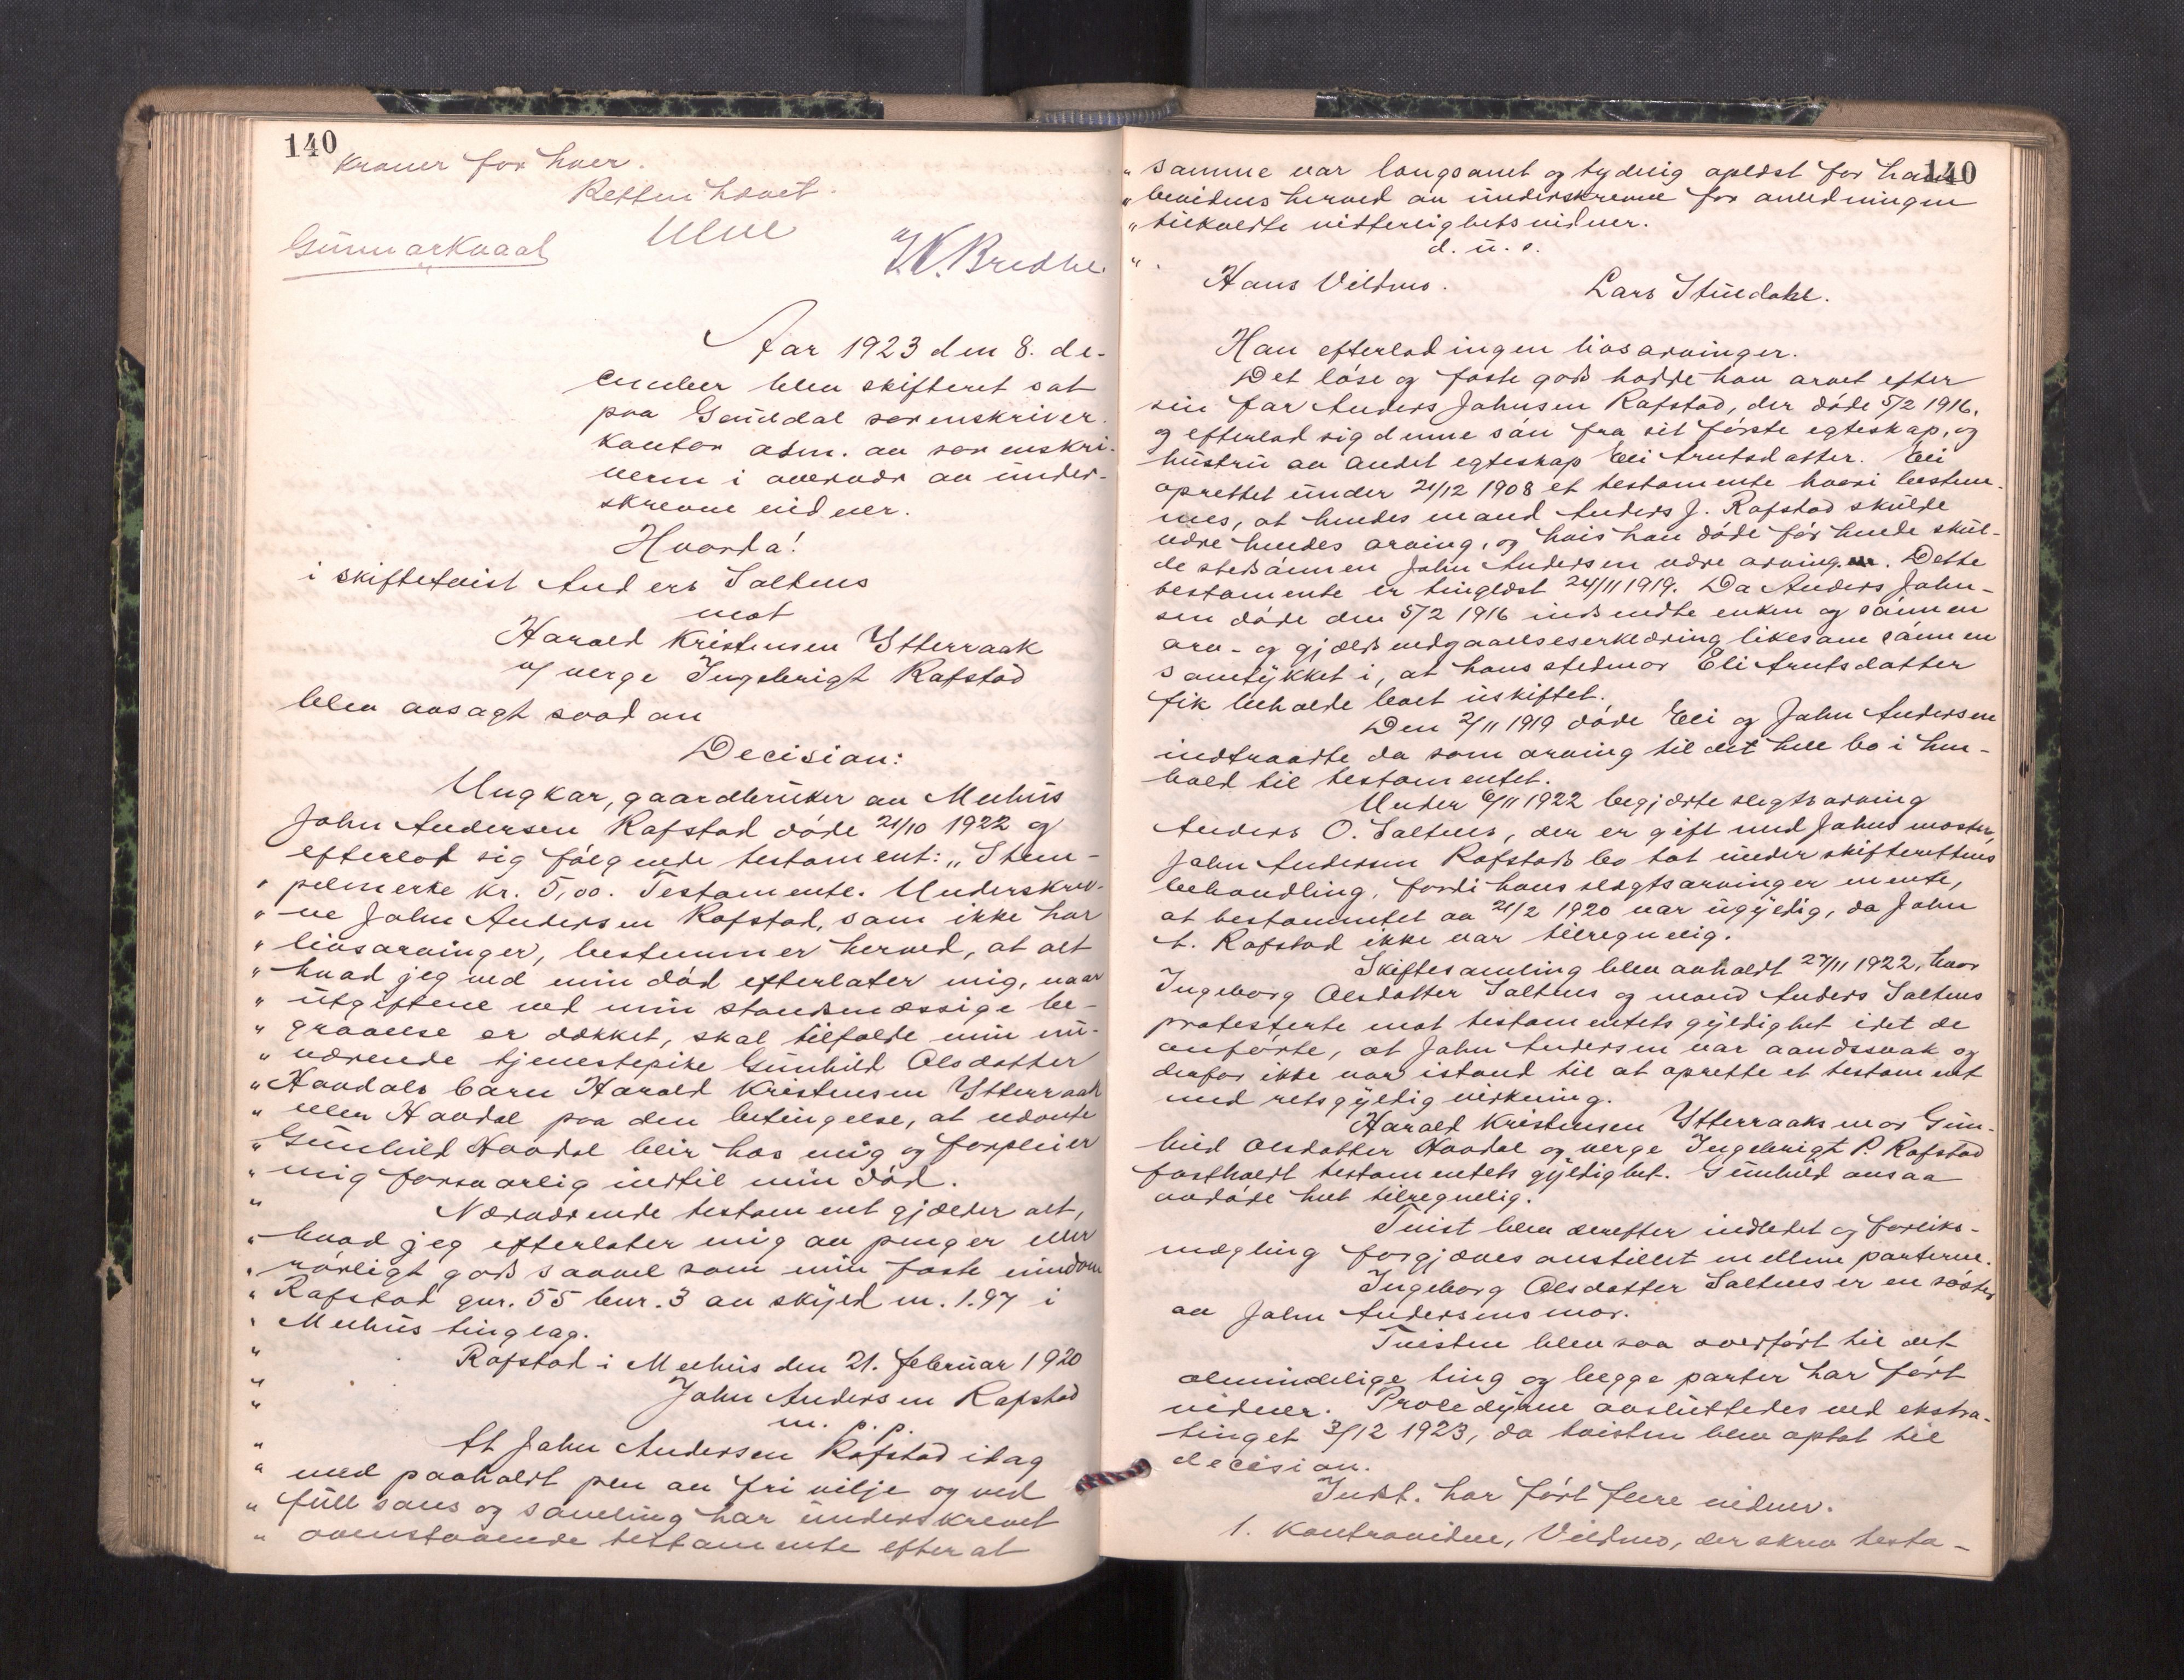 140
Kroner for hver.
Retten hævet.
Ulve
Gunnar Kvaal
W. Bredhe.
Aar 1923 den 8. de-
cember blev skifteret sat
paa Gauldal sorenskriver-
kontor adm. av sorenskri-
veren i overvær av under-
skrevne vidner.
Hvorda!
i skiftetvist Anders Saltnes
mot
Harald Kristensen Ytterraak
v/ verge Ingebrigt Rafstad
blev avsagt saadan
Decision:
Ungkar, gaardbruker av Melhus
John Andersen Rafstad døde 21/10 1922 og
efterlot sig følgende testament: „Stem-
„ pelmerke kr. 5,00. Testamente. Underskrev-
„ ne John Andersen Rafstad, som ikke har
„ livsarvinger, bestemmer herved, at alt
„ hvad jeg ved min død efterlater mig, naar
„ utgiftene ved min standsmæssige be-
„ gravelse er dækket, skal tilfalde min nu-
„ værende tjenestepike Gunhild Olsdatter
„ Havdals barn Harald Kristensen Ytterraak
„ eller Havdal paa den betingelse, at nævnte
„ Gunhild Havdal blir hos mig og forpleier
„ mig forsvarlig indtil min død.
„ Nærværende testament gjælder alt,
„ hvad jeg efterlater mig av penger eller
„ rørligt gods saavel som min faste eiendom
„ Rafstad gnr. 55 bnr. 3 av skyld m. 1.97 i
„ Melhus tinglag.
„ Rafstad i Melhus den 21. februar 1920
„ John Andersen Rafstad
„ m. p. p.
„ At John Andersen Rafstad idag
„ med paaholdt pen av fri vilje og ved
„ full sans og samling har underskrevet
„ ovenstaaende testamente efter at
140
„ samme var langsomt og tydelig oplæst for ham
„ bevidnes herved av underskrevne for anledningen
„ tilkaldte vitterlighetsvidner.
„ d. u. s.
Hans Vildmo. Lars Stuedahl.
Han efterlod ingen livsarvinger.
Det løse og faste gods hadde han arvet efter
sin far Anders Johnsen Rafstad, der døde 5/2 1916.
og efterlod sig denne søn fra sit første egteskap, og
hustru av andet egteskap Eli Arntsdatter. Eli
oprettet under 21/12 1908 et testamente hvori bestem-
mes, at hendes mand Anders J. Rafstad skulde
være hendes arving, og hvis han døde før hende skul-
de stedsønnen John Andersen være arving. Dette
testamente er tinglæst 24/11 1919. Da Anders John-
sen døde den 5/2 1916 indsendte enken og sønnen
arv- og gjældsvedgaaelseserklæring likesom sønnen
samtykket i, at hans stedmor Eli Arntsdatter
fik beholde boet uskiftet.
Den 2/11 1919 døde Eli og John Andersen
indtraadte da som arving til det hele bo i hen-
hold til testamentet.
Under 6/11 1922 begjærte slegtsarving
Anders O. Saltnes, der er gift med Johns moster,
John Andersen Rafstads bo tat under skifterettens
behandling, fordi hans slegtsarvinger mente,
at testamentet av 21/2 1920 var ugyldig, da John
A. Rafstad ikke var tilregnelig.
Skiftesamling blev avholdt 27/11 1922, hvor
Ingeborg Olsdatter Saltnes og mand Anders Saltnes
protesterte mot testamentets gyldighet idet de
anførte, at John Andersen var aandssvak og
derfor ikke var istand til at oprette et testament
med retsgyldig virkning.
Harald Kristensen Ytterraaks mor Gun-
hild Olsdatter Havdal og verge Ingebrigt P. Rafstad
fastholdt testamentets gyldighet. Gunhild ansaa
avdøde helt tilregnelig.
Tvist blev derefter indledet og forliks-
mægling forgjæves anstillet mellem parterne.
Ingeborg Olsdatter Saltnes er en søster
av John Andersens mor.
Tvisten blev saa overført til det
almindelige ting og begge parter har ført
vidner. Proceduren avsluttedes ved ekstra-
tinget 3/12 1923, da tvisten blev optat til
decision.
Indst. har ført flere vidner.
1. Kontravidne, Vildmo, der skrev testa-